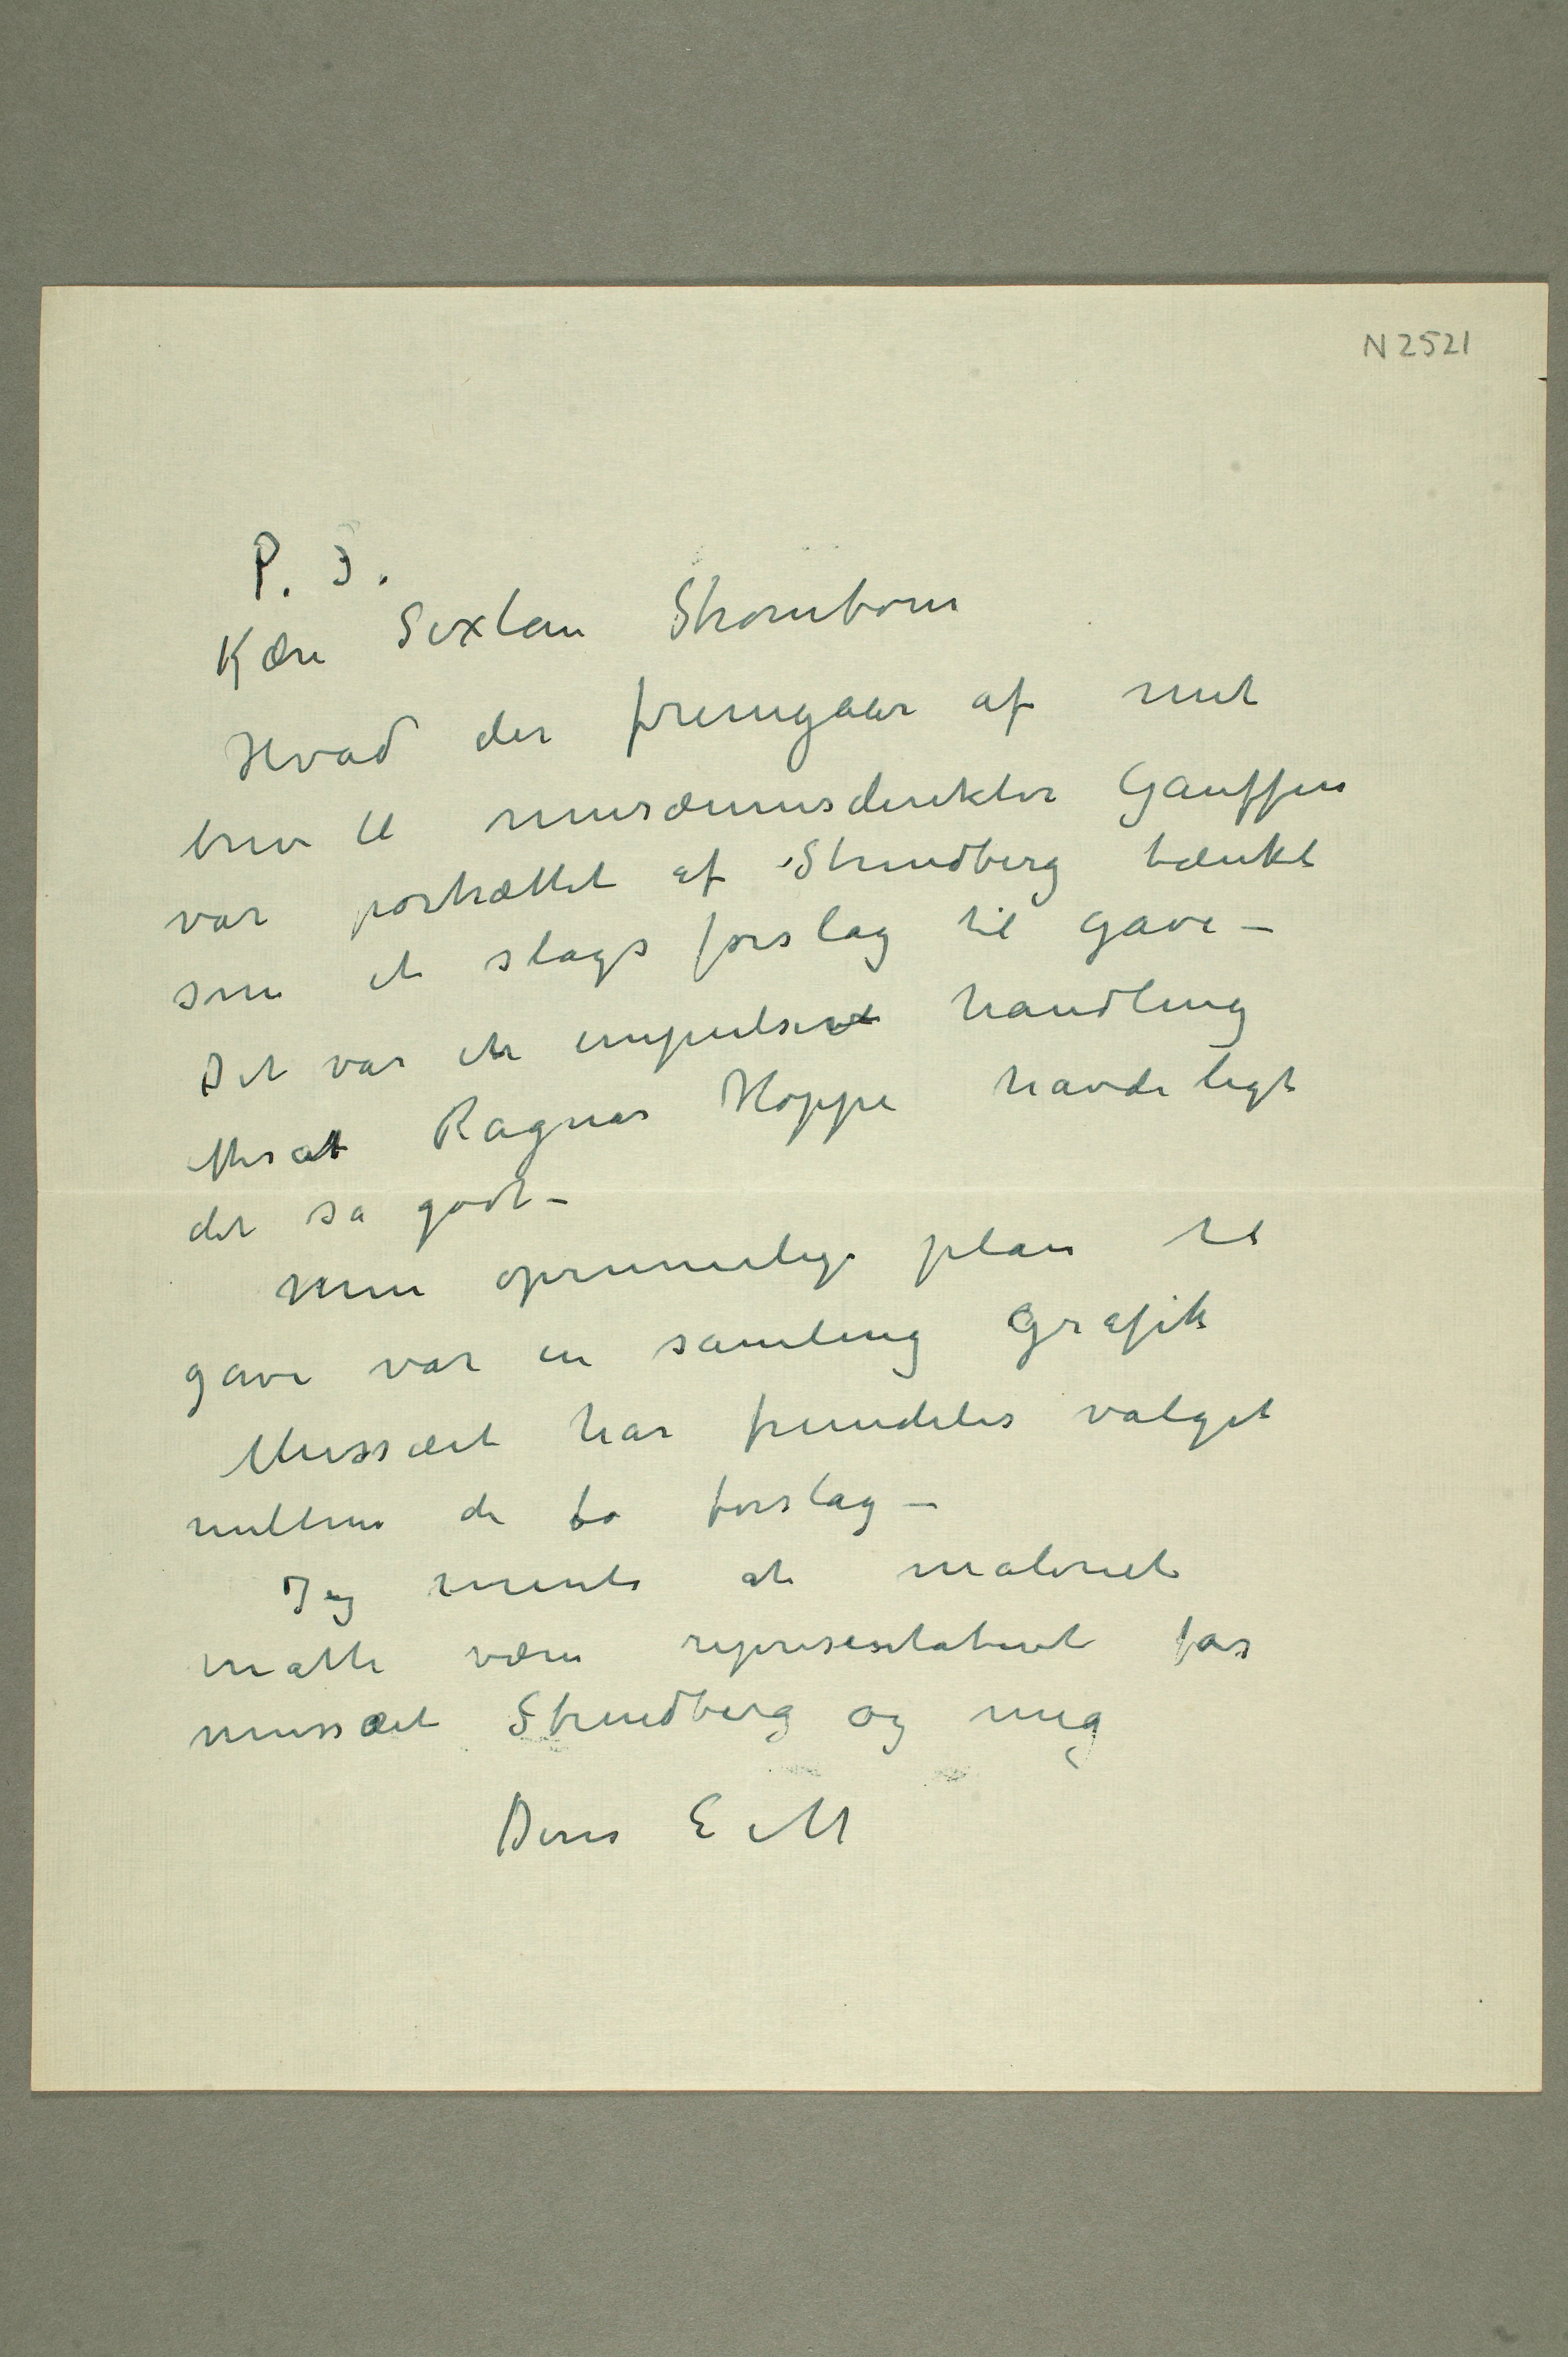 N 2521
P. S.
Kære Sixtan Strømbom
Hvad der fremgaar af mit
brev til musæumsdirektør Gauffin
var portrættet af Strindberg tænkt
som et slags forslag til gave –
Det var en impulsiv handling
efter at Ragnar Hoppe havde ligt
det så godt –
Min oprinnelige plan til
gave var en samling Grafik
Mussæet har fremdeles valget
mellem de to forslag –
Jeg mente at maleriet
måtte være representativt for
mussæet Strindberg og mig
Deres E M